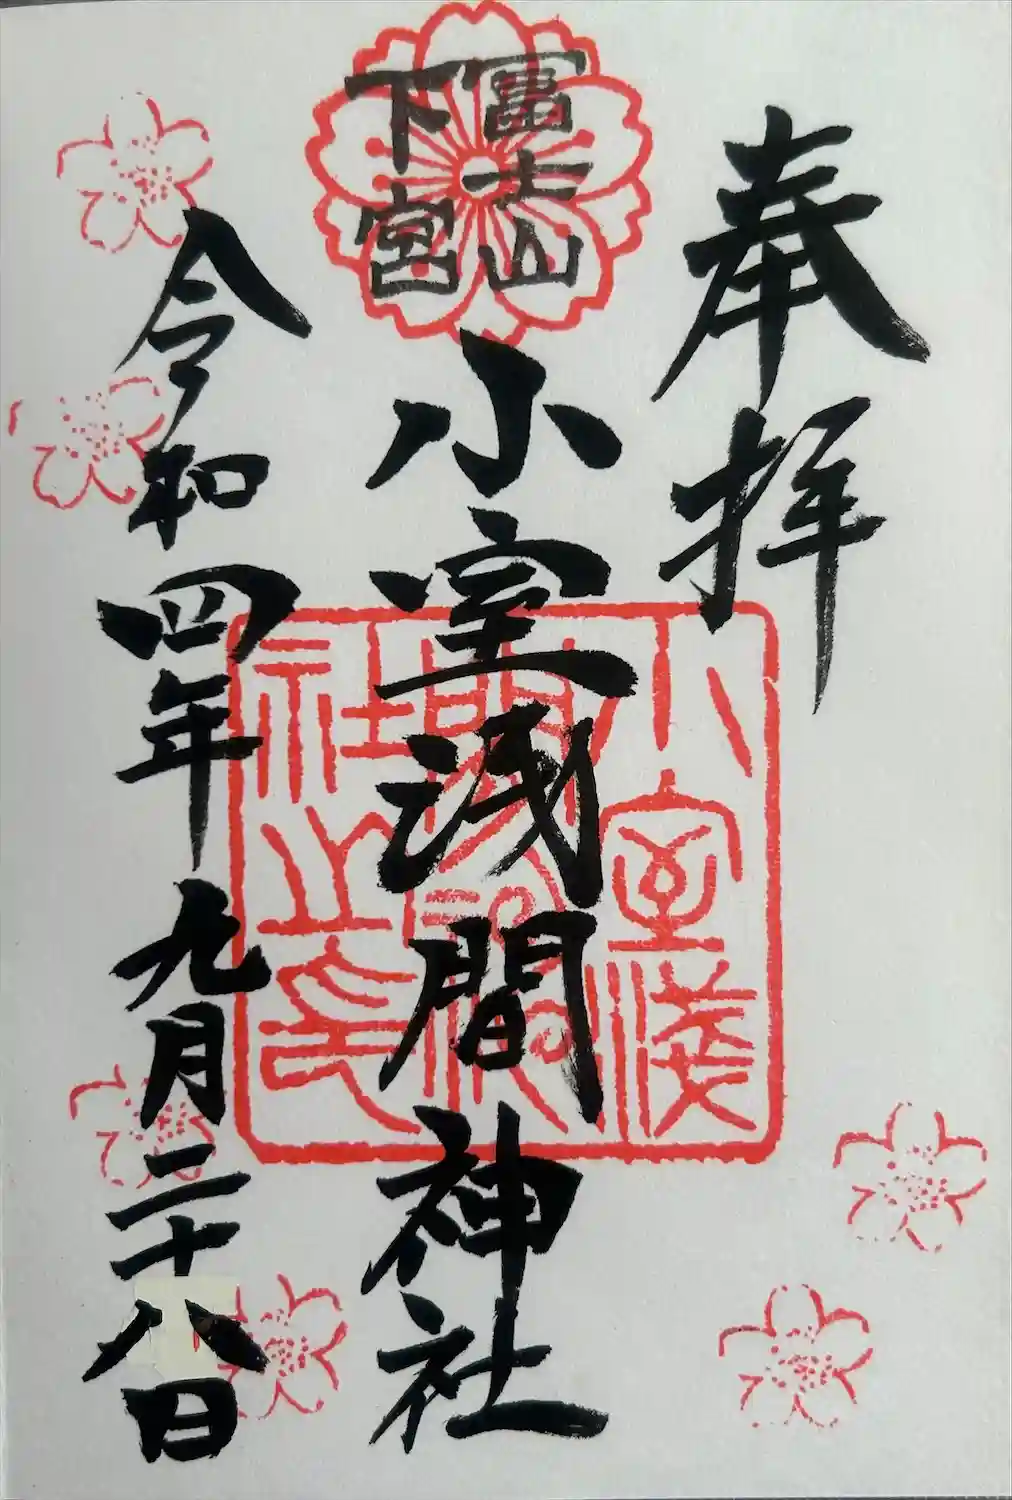 奉拝
冨士山
下宮
小室浅間神社
小室浅
間神
社之印
令和四年九月二十八日